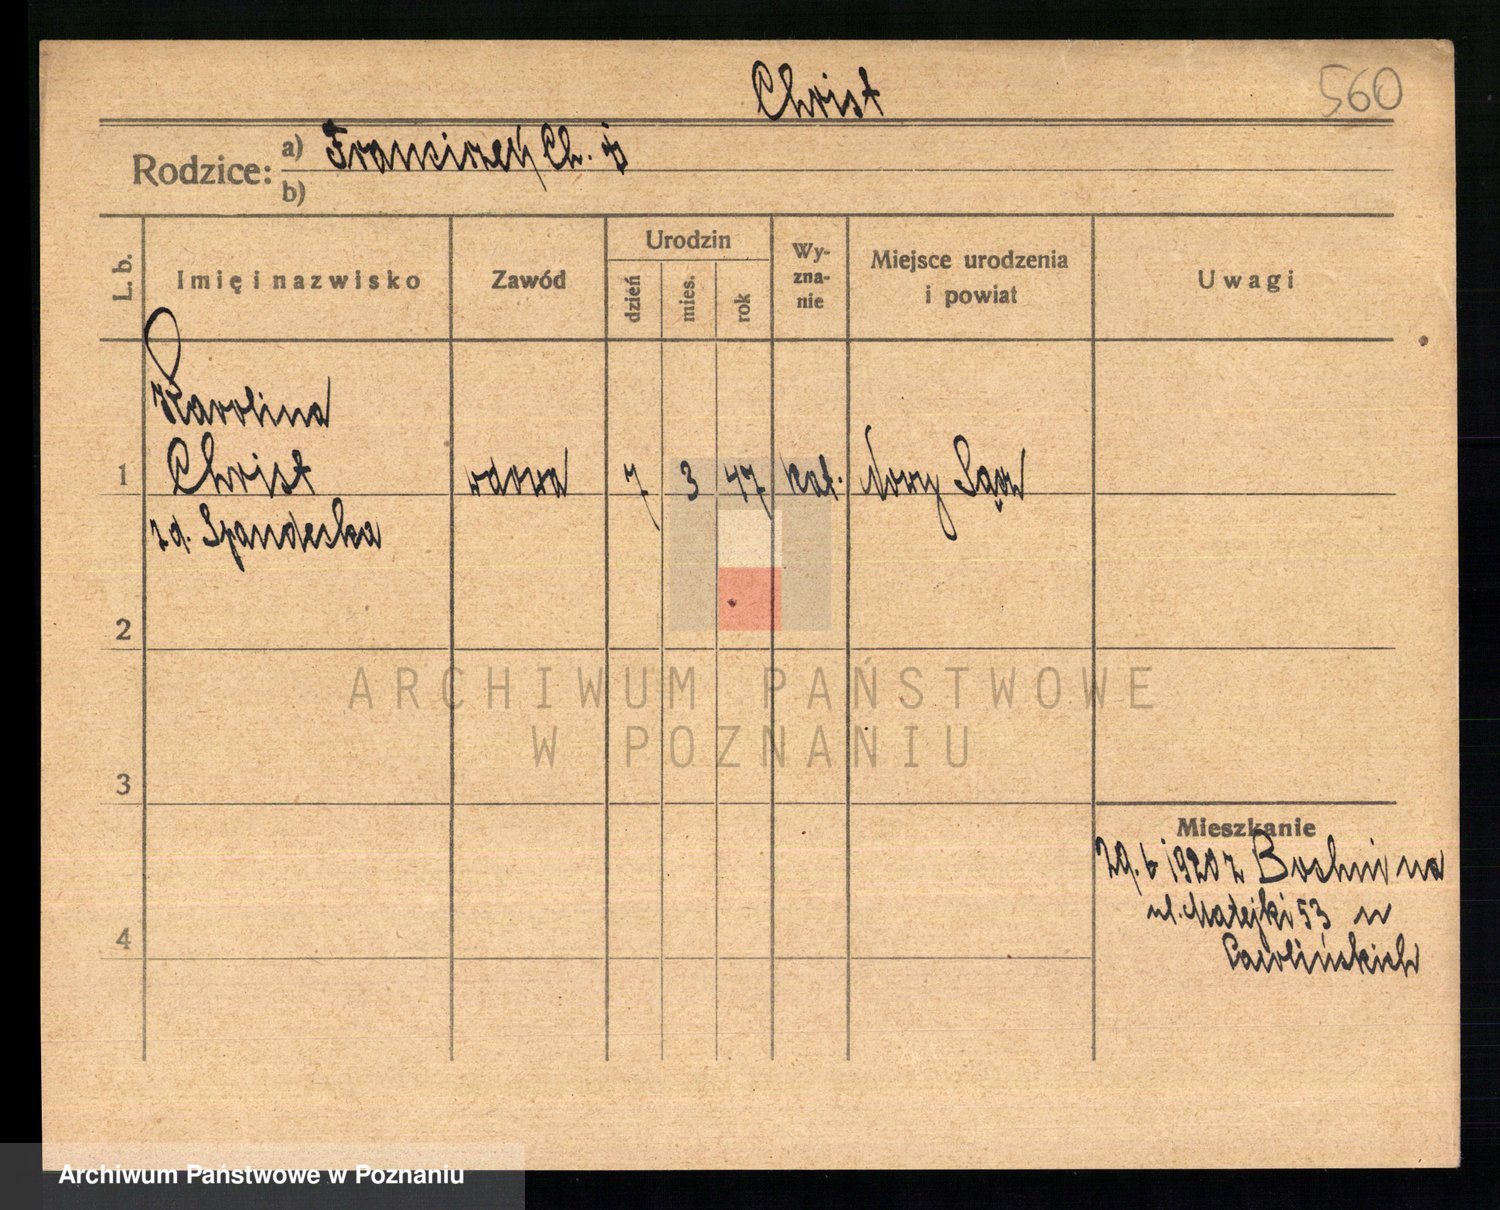 Christ
560
Rodzice:
a) Franciszek Ch.
b)
L. b.
Imię i nazwisko
Zawód
Urodzin
dzień
mies.
rok
Wy-
zna-
nie
Miejsce urodzenia
i powiat
Uwagi
Karolina
1 Christ wdowa 7 3 47 kat. Nowy Sącz
z d. Spandeska
2
3
4
Mieszkanie
29.6 1920 z Bochni na
ul. Matejki 53 u
ARCHIWUM PAŃSTWOWE
W POZNANIU
Archiwum Państwowe w Poznaniu